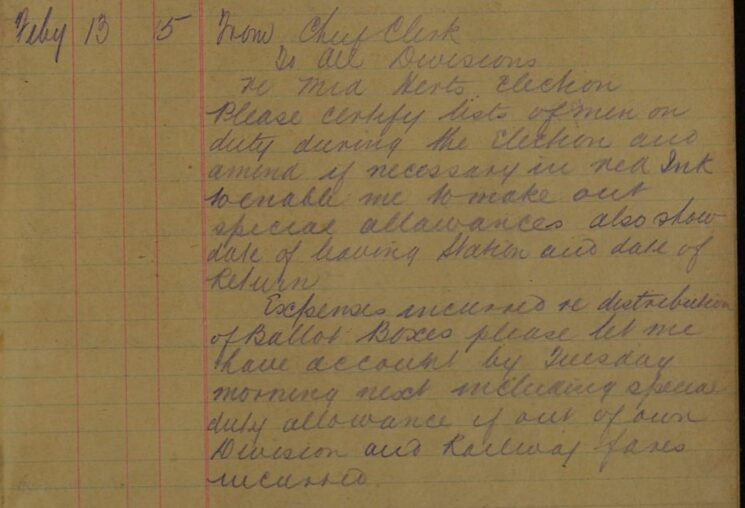 Feby 13 5 From Chief Clerk
To All Divisions
re Mid Herts Election
Please certify lists of men on
duty during the Election and
amend if necessary in red Ink
to enable me to make out
special allowances also show
date of leaving Station and date of
Return
Expenses incurred re distribution
of Ballot Boxes please let me
have account by Tuesday
morning next including special
duty allowance if out of own
Division and Railway fares
incurred.